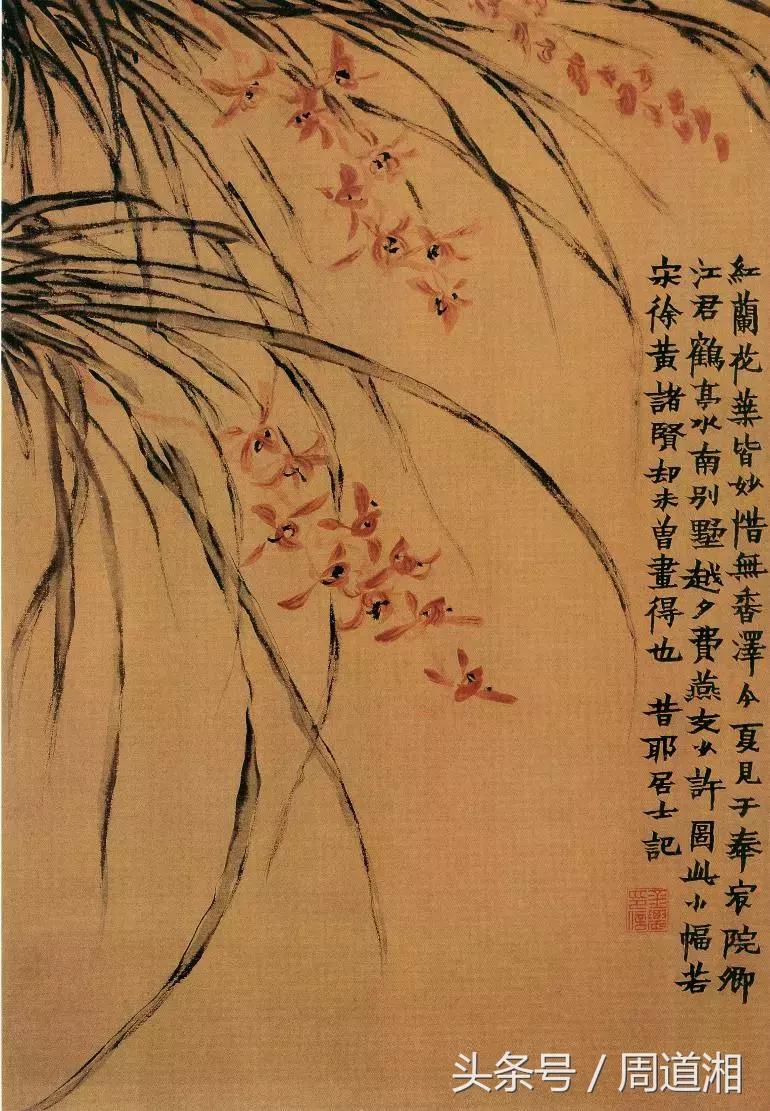 紅蘭花葉皆妙惜無香澤今夏見于奉宸院卿
江君鶴亭水南別墅越夕費燕支少許圖此小幅若
宋徐黃諸賢却未曾畫得也 昔耶居士記
金農
印信
头条号 / 周道湘